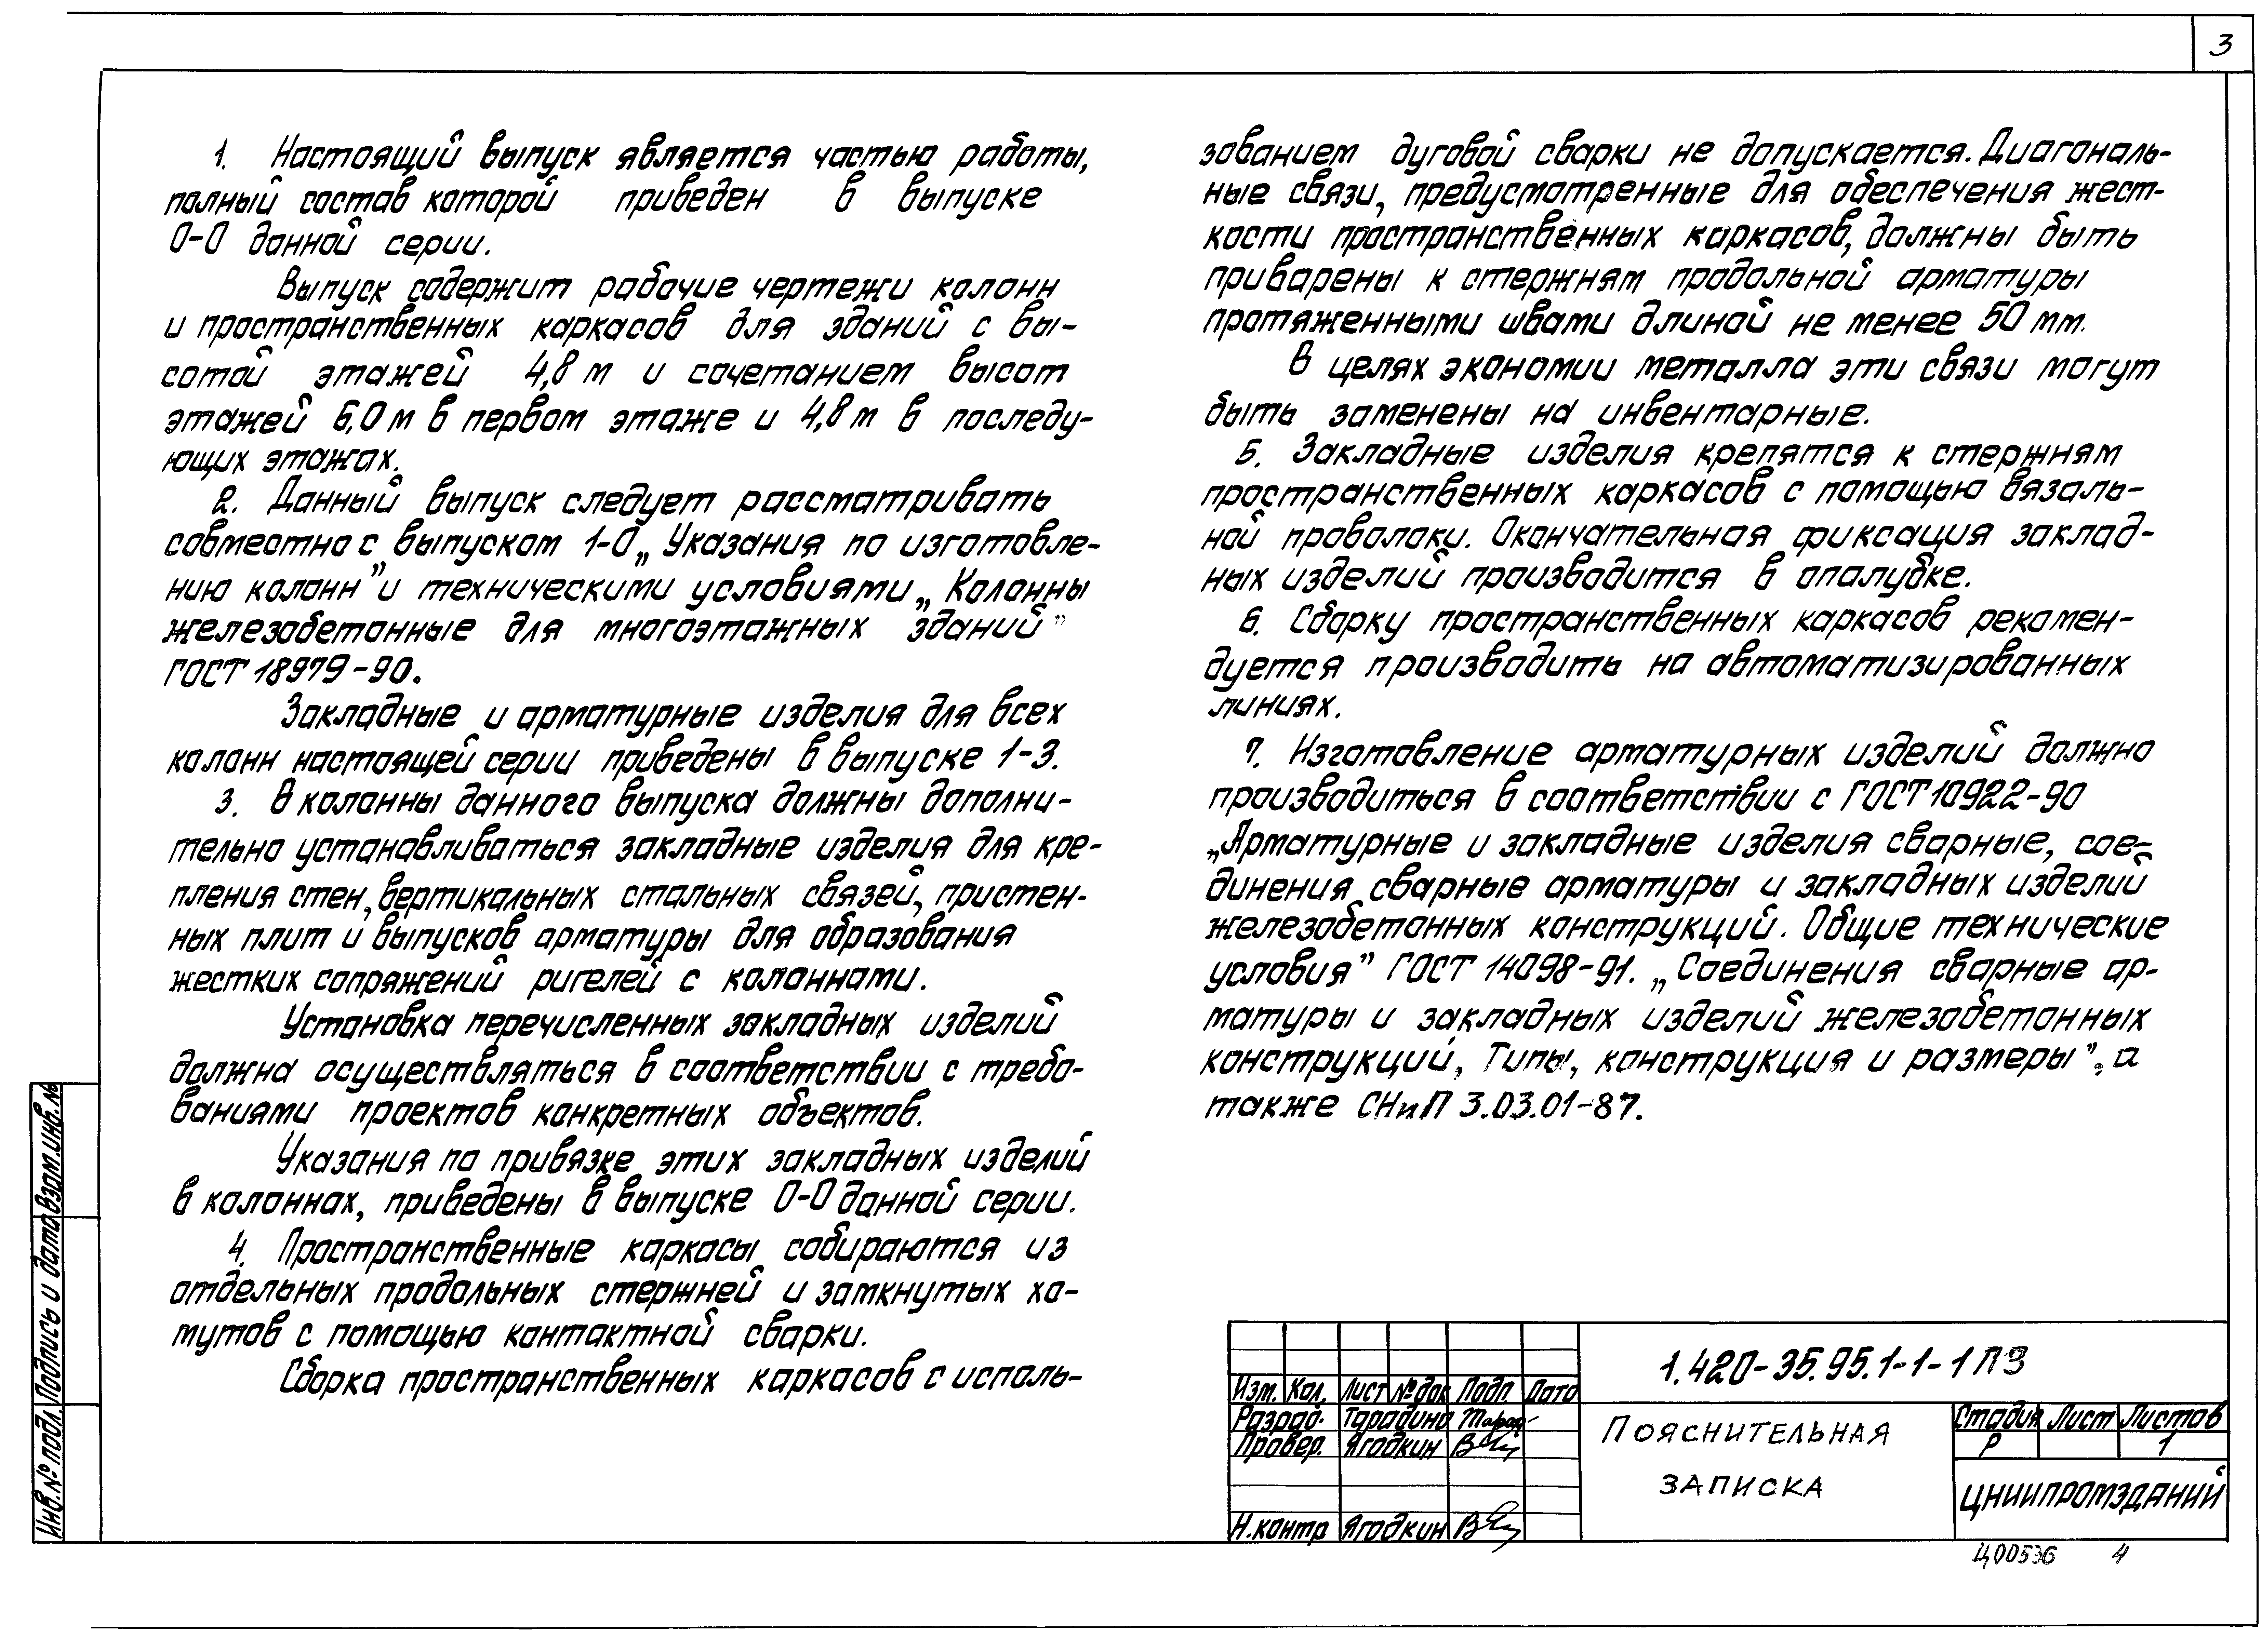 3
1. Настоящий выпуск является частью работы,
полный состав которой приведен в выпуске
0-0 данной серии.
Выпуск содержит рабочие чертежи колонн
и пространственных каркасов для зданий с вы-
сотой этажей 4,8 м и сочетанием высот
этажей 6,0 м в первом этаже и 4,8 м в последу-
ющих этажах.
2. Данный выпуск следует рассматривать
совместно с выпуском 1-0 „Указания по изготовле-
нию колонн" и техническими условиями „Колонны
железобетонные для многоэтажных зданий"
ГОСТ 18979-90.
Закладные и арматурные изделия для всех
колонн настоящей серии приведены в выпуске 1-3.
3. В колонны данного выпуска должны дополни-
тельно устанавливаться закладные изделия для кре-
пления стен, вертикальных стальных связей, пристен-
ных плит и выпусков арматуры для образования
жестких сопряжений ригелей с колоннами.
Установка перечисленных закладных изделий
должна осуществляться в соответствии с требо-
ваниями проектов конкретных объектов.
Указания по привязке этих закладных изделий
в колоннах, приведены в выпуске 0-0 данной серии.
4. Пространственные каркасы собираются из
отдельных продольных стержней и замкнутых хо-
мутов с помощью контактной сварки.
Сборка пространственных каркасов с исполь-
зованием дуговой сварки не допускается. Диагональ-
ные связи, предусмотренные для обеспечения жест-
кости пространственных каркасов, должны быть
приварены к стержням продольной арматуры
протяженными швами длиной не менее 50 мм.
В целях экономии металла эти связи могут
быть заменены на инвентарные.
5. Закладные изделия крепятся к стержням
пространственных каркасов с помощью вязаль-
ной проволоки. Окончательная фиксация заклад-
ных изделий производится в опалубке.
6. Сборку пространственных каркасов рекомен-
дуется производить на автоматизированных
линиях.
7. Изготовление арматурных изделий должно
производиться в соответствии с ГОСТ 10922-90
„Арматурные и закладные изделия сварные, сое-
динения сварные арматуры и закладных изделий
железобетонных конструкций. Общие технические
условия" ГОСТ 14098-91. „Соединения сварные ар-
матуры и закладных изделий железобетонных
конструкций, Типы, конструкция и размеры", а
также СНиП 3.03.01-87.
Взам.инв.№
Подпись и дата
Инв.№ подл.
1.420-35.95.1-1-1 ПЗ
Изм. Кол. Лист № док Подп. Дата
Разраб. Тарадина Тарад
Провер. Ягодкин
Н.контр Ягодкин
Пояснительная
записка
Стадия Лист Листов
Р 1
ЦНИИПРОМЗДАНИЙ
Ц00536 4